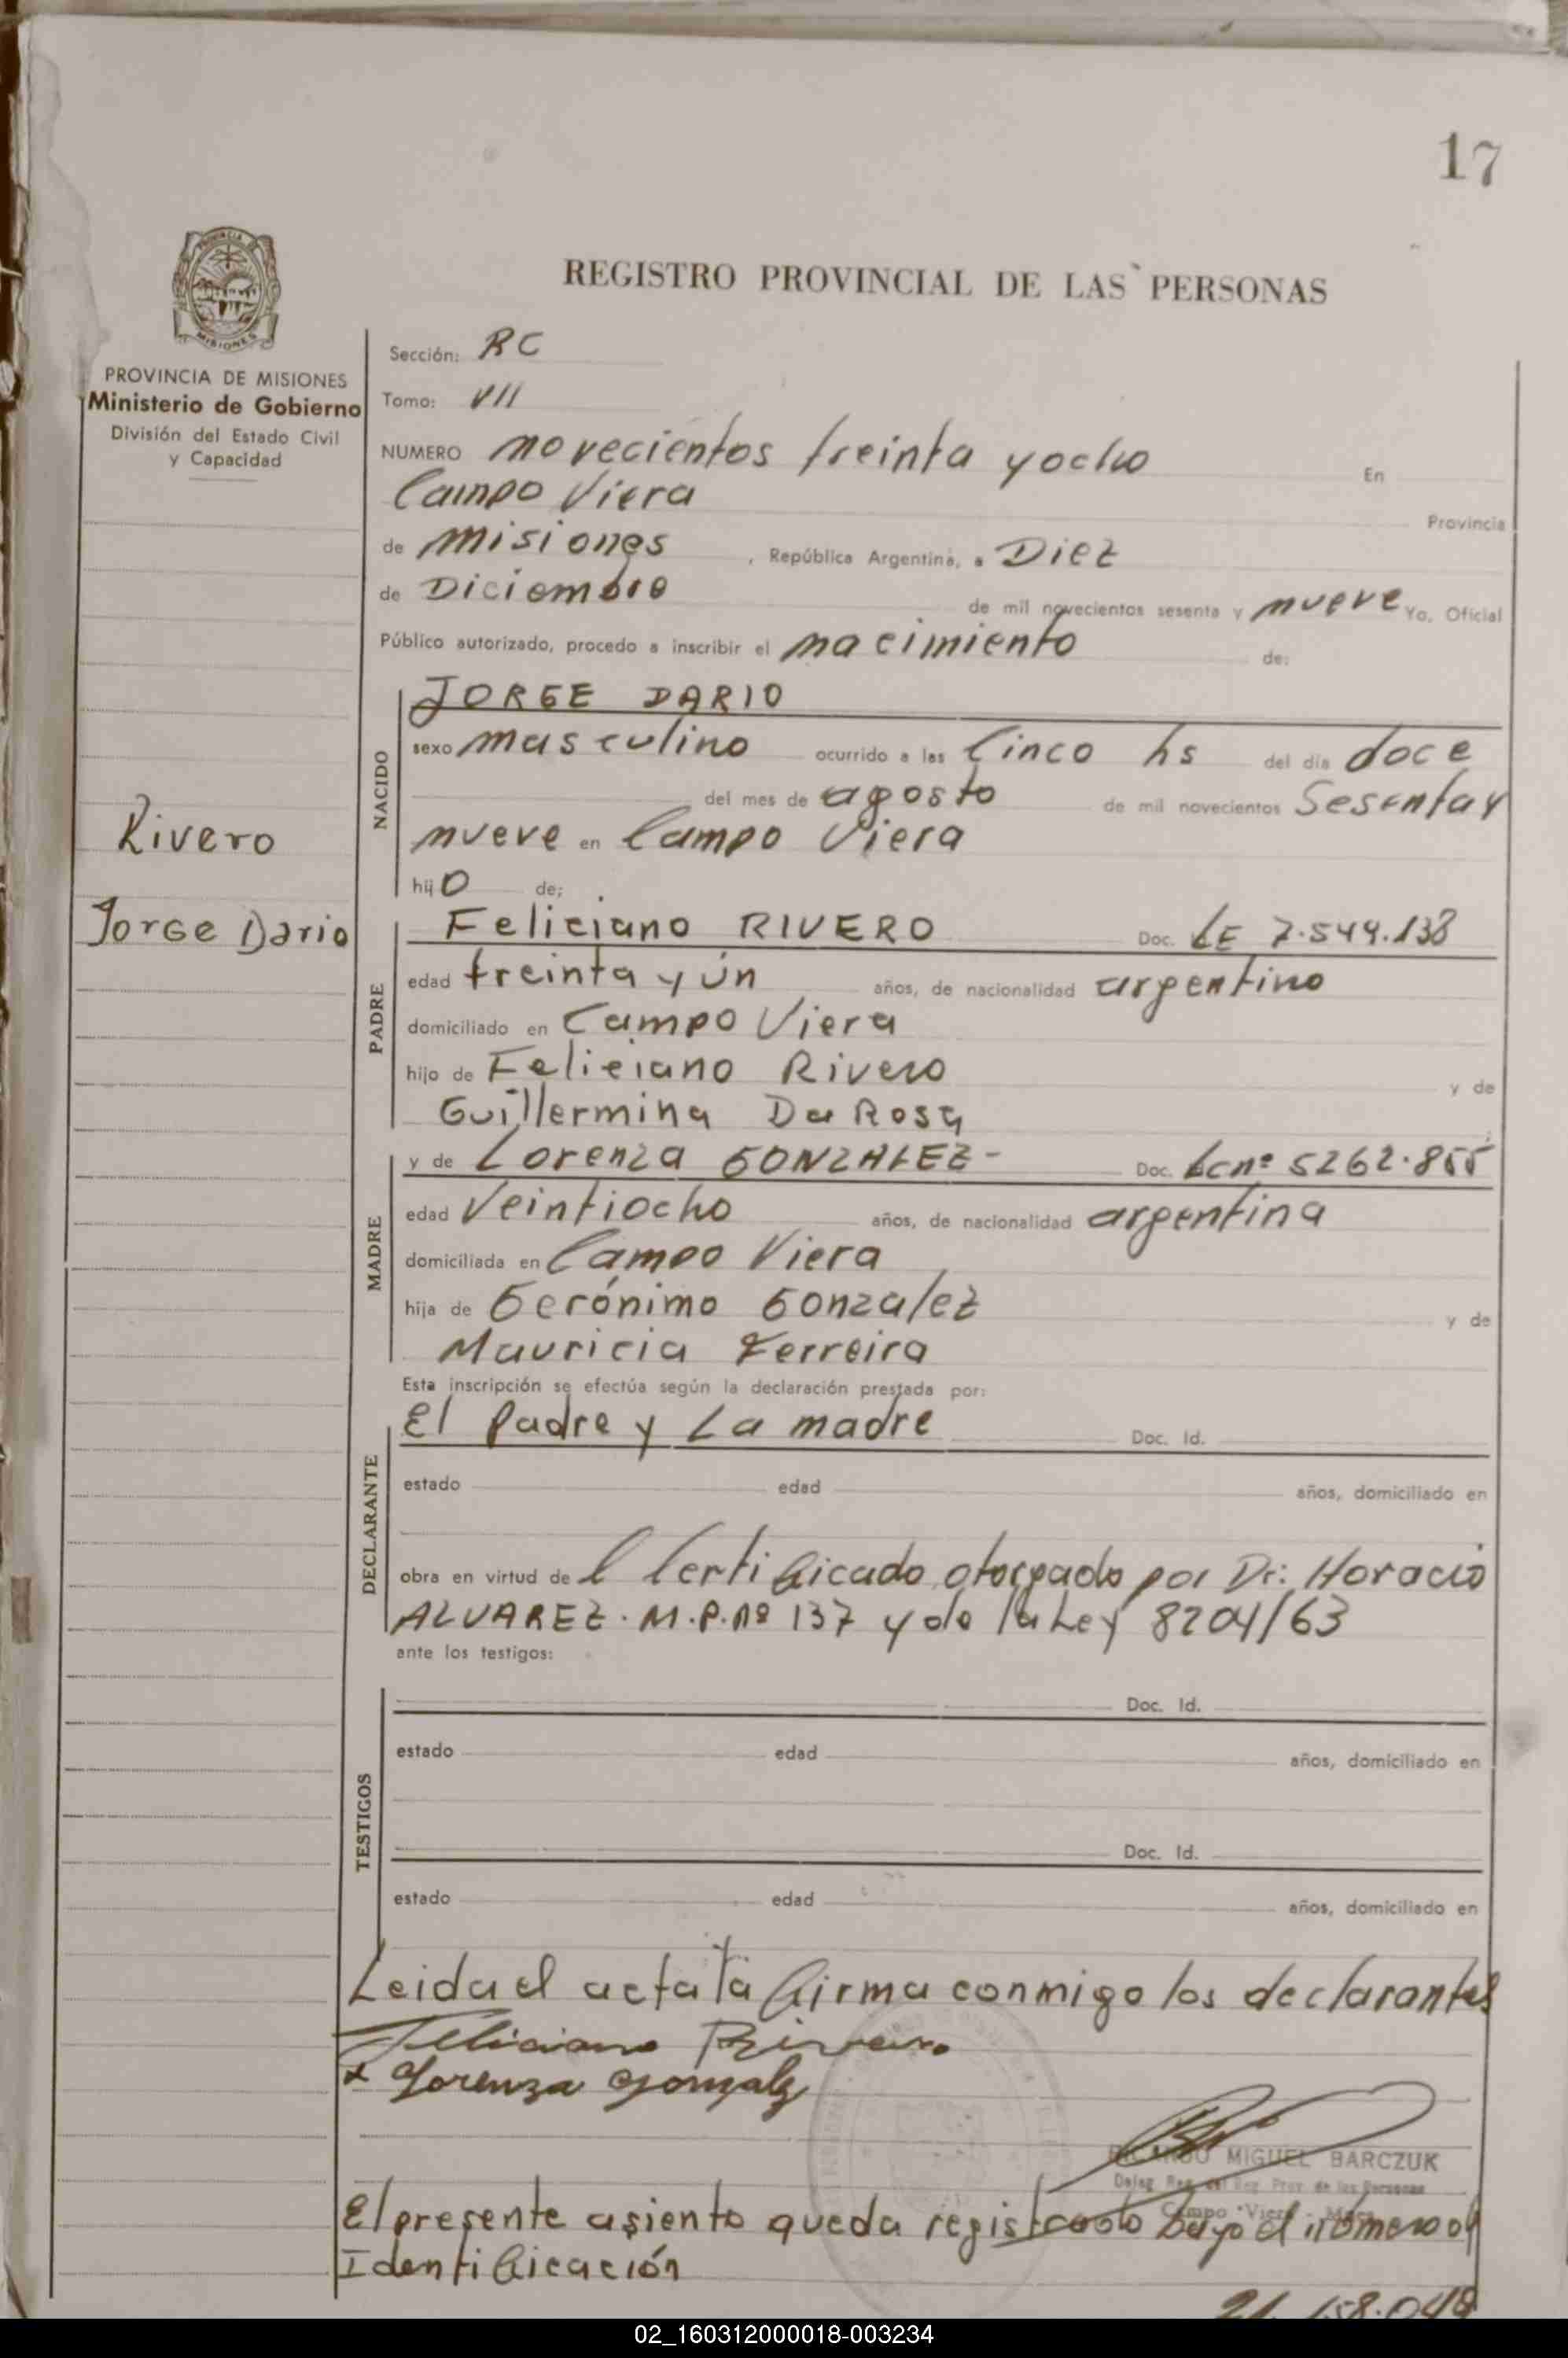 17
PROVINCIA DE
MISIONES
REGISTRO PROVINCIAL DE LAS PERSONAS
PROVINCIA DE MISIONES
Ministerio de Gobierno
División del Estado Civil
y Capacidad
Sección: RC
Tomo: VII
NUMERO novecientos treinta y ocho En
Campo Viera Provincia
de Misiones , República Argentina, a Diez
de Diciembre de mil novecientos sesenta y nueve Yo, Oficial
Público autorizado, procedo a inscribir el nacimiento de:
NACIDO
JORGE DARIO
sexo masculino ocurrido a las Cinco hs del día doce
del mes de agosto de mil novecientos Sesenta y
nueve en Campo Viera
hijo de;
Rivero
Jorge Dario
PADRE
Feliciano RIVERO Doc. LE 7.549.138
edad treinta y un años, de nacionalidad argentino
domiciliado en Campo Viera
hijo de Feliciano Rivero y de
Guillermina Da Rosa
MADRE
y de Lorenza GONZALEZ- Doc. Lcnº 5262.855
edad Veintiocho años, de nacionalidad argentina
domiciliada en Campo Viera
hija de Gerónimo Gonzalez y de
Mauricia Ferreira
Esta inscripción se efectúa según la declaración prestada por:
DECLARANTE
El Padre y La madre Doc. Id.
estado edad años, domiciliado en
obra en virtud de l Certificado otorgado por Dr: Horacio
ALVAREZ. M.P.nº 137 y de la Ley 8204/63
ante los testigos:
TESTIGOS
Doc. Id.
estado edad años, domiciliado en
Doc. Id.
estado edad años, domiciliado en
Leida el acta la firma conmigo los declarantes
Feliciano Rivero
x Lorenza Gonzalz
RICARDO MIGUEL BARCZUK
Deleg. Reg. del Reg. Prov. de las Personas
Campo Viera -
El presente asiento queda registrado bajo el número de
Identificación
21.158.048
02_160312000018-003234